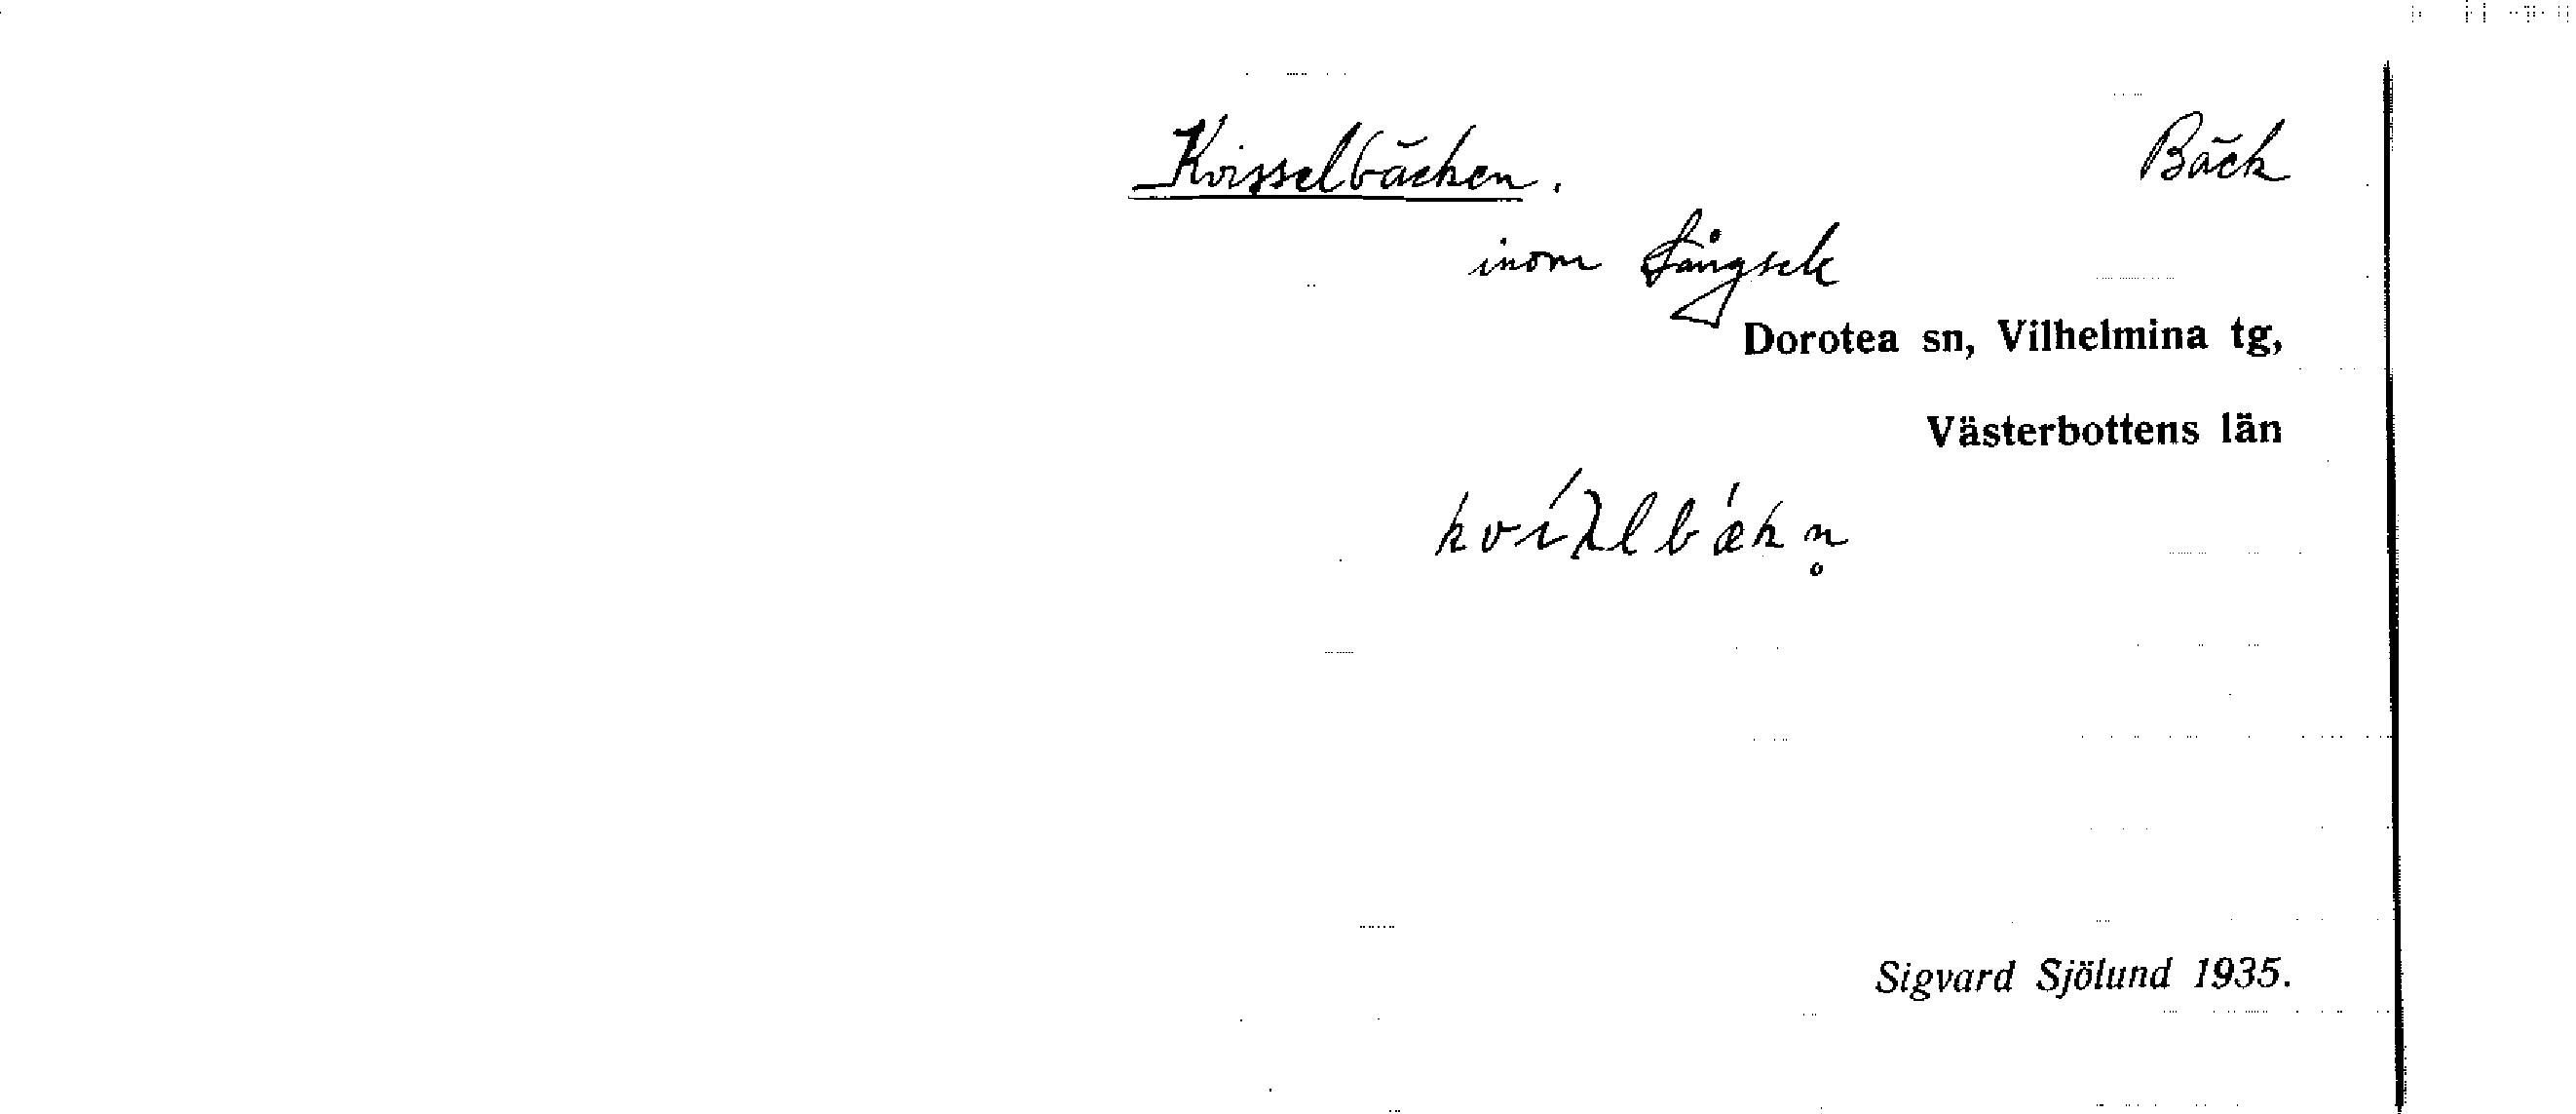 Kvisselbäcken. Bäck
inom Långsele
Dorotea sn, Vilhelmina tg,
Västerbottens län
Sigvard Sjölund 1935.